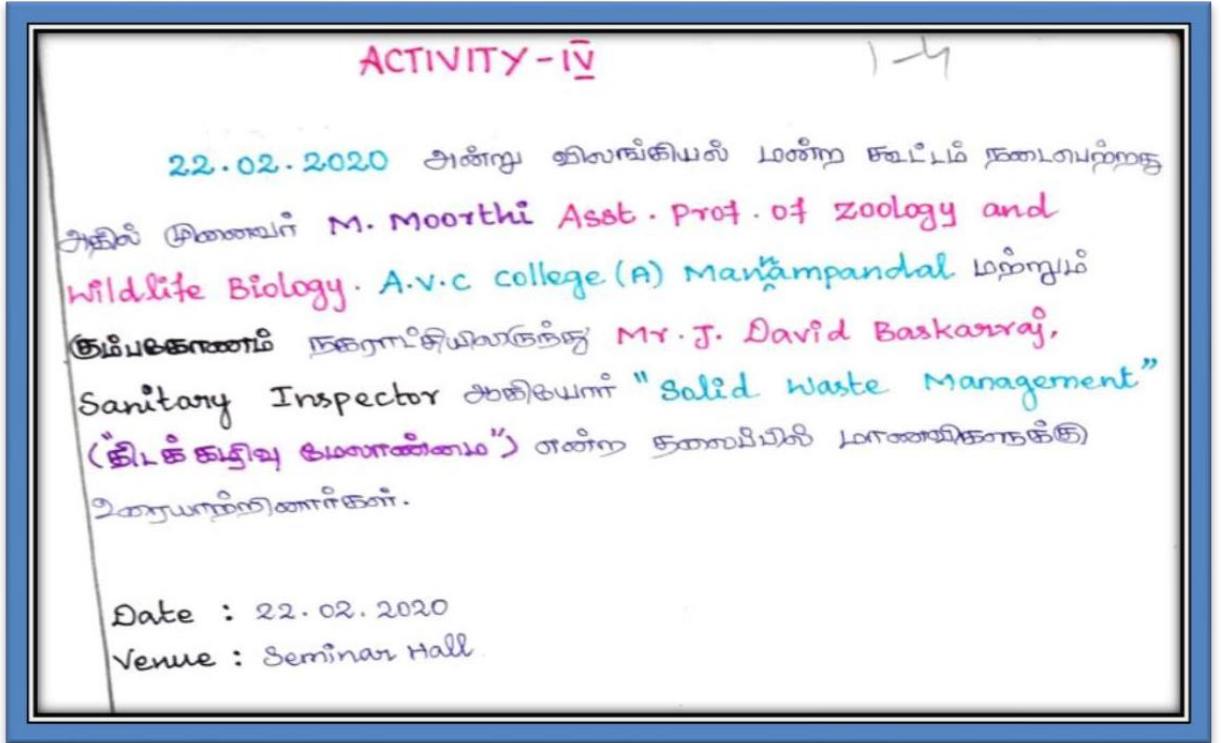 ACTIVITY - IV
1-4
22.02.2020 அன்று விலங்கியல் மன்ற கூட்டம் நடைபெற்றது
அதில் முனைவர் M. Moorthi Asst. Prof. of Zoology and
Wildlife Biology. A.V.C College (A) Manampandal மற்றும்
கும்பகோணம் நகராட்சியிலிருந்து Mr. J. David Baskarraj,
Sanitary Inspector ஆகியோர் "Solid Waste Management"
("திடக்கழிவு மேலாண்மை") என்ற தலைப்பில் மாணவிகளுக்கு
உரையாற்றினார்கள்.
Date : 22.02.2020
Venue : Seminar Hall